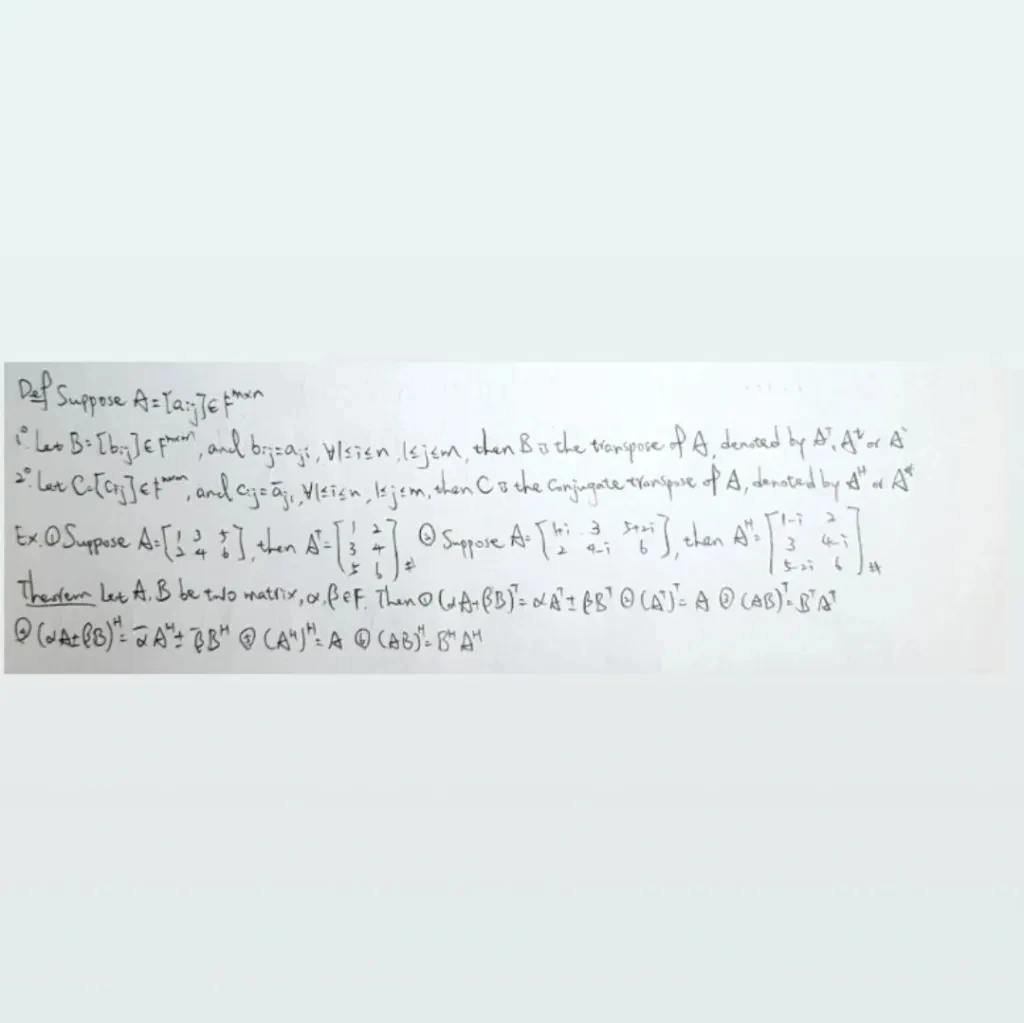 Def Suppose A=[aij]∈F^m×n
1°. Let B=[bij]∈F^n×m, and bij=aji, ∀1≤i≤n, 1≤j≤m, then B is the transpose of A, denoted by A^T, A^t or A`
2°. Let C=[cij]∈F^n×m, and cij=āji, ∀1≤i≤n, 1≤j≤m, then C is the conjugate transpose of A, denoted by A^H or A^*
Ex. ① Suppose A=[1 3 5; 2 4 6], then A^T=[1 2; 3 4; 5 6]# ② Suppose A=[1+i 3 5+2i; 2 4-i 6], then A^H=[1-i 2; 3 4-i; 5-2i 6]#
Theorem Let A, B be two matrix, α, β∈F. Then ① (αA±βB)^T=αA^T±βB^T ② (A^T)^T=A ③ (AB)^T=B^TA^T
④ (αA±βB)^H=ᾱA^H±β̄B^H ⑤ (A^H)^H=A ⑥ (AB)^H=B^HA^H